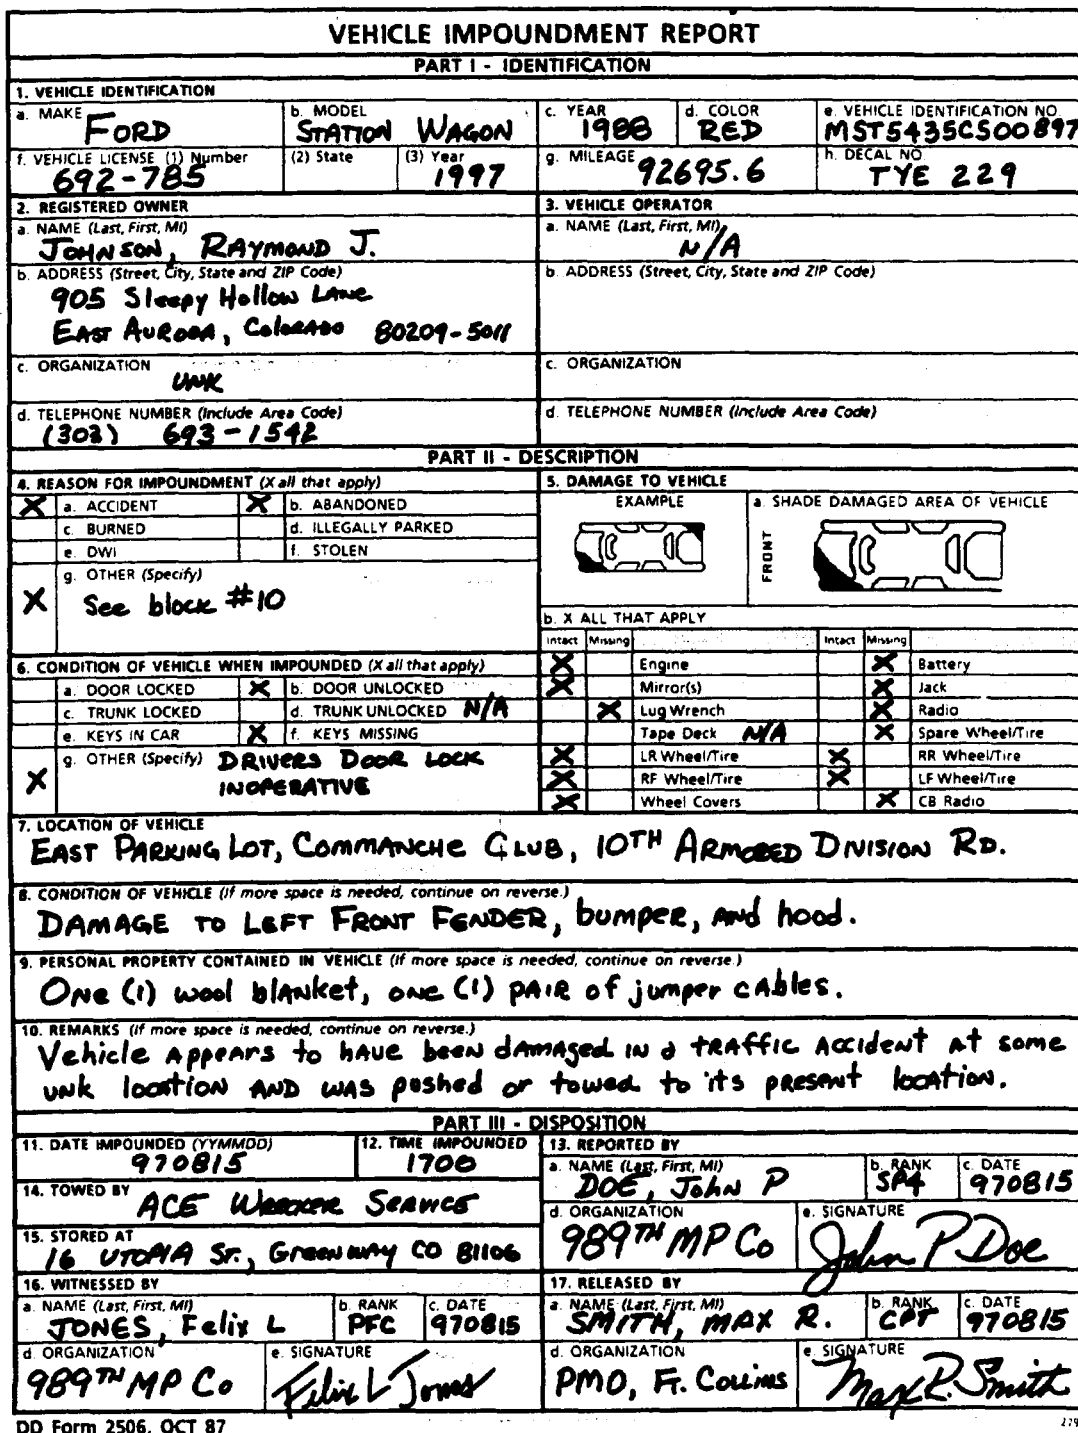 VEHICLE IMPOUNDMENT REPORT
PART I - IDENTIFICATION
1. VEHICLE IDENTIFICATION
a. MAKE FORD
b. MODEL STATION WAGON
c. YEAR 1988
d. COLOR RED
e. VEHICLE IDENTIFICATION NO. MST5435CS00897
f. VEHICLE LICENSE (1) Number 692-785
(2) State
(3) Year 1997
g. MILEAGE 92695.6
h. DECAL NO. TYE 229
2. REGISTERED OWNER
a. NAME (Last, First, MI) JOHNSON, RAYMOND J.
b. ADDRESS (Street, City, State and ZIP Code)
905 Sleepy Hollow LANE
EAST AURORA, COLORADO 80209-5011
c. ORGANIZATION UNK
d. TELEPHONE NUMBER (Include Area Code)
(303) 693-1542
3. VEHICLE OPERATOR
a. NAME (Last, First, MI) N/A
b. ADDRESS (Street, City, State and ZIP Code)
c. ORGANIZATION
d. TELEPHONE NUMBER (Include Area Code)
PART II - DESCRIPTION
4. REASON FOR IMPOUNDMENT (X all that apply)
X a. ACCIDENT X b. ABANDONED
c. BURNED d. ILLEGALLY PARKED
e. DWI f. STOLEN
X g. OTHER (Specify)
See block #10
5. DAMAGE TO VEHICLE
EXAMPLE
a. SHADE DAMAGED AREA OF VEHICLE
FRONT
b. X ALL THAT APPLY
Intact Missing Intact Missing
X Engine X Battery
X Mirror(s) X Jack
X Lug Wrench X Radio
Tape Deck N/A X Spare Wheel/Tire
X LR Wheel/Tire X RR Wheel/Tire
X RF Wheel/Tire X LF Wheel/Tire
X Wheel Covers X CB Radio
6. CONDITION OF VEHICLE WHEN IMPOUNDED (X all that apply)
a. DOOR LOCKED X b. DOOR UNLOCKED
c. TRUNK LOCKED d. TRUNK UNLOCKED N/A
e. KEYS IN CAR X f. KEYS MISSING
X g. OTHER (Specify) DRIVERS DOOR LOCK
INOPERATIVE
7. LOCATION OF VEHICLE
EAST PARKING LOT, COMMANCHE CLUB, 10TH ARMORED DIVISION RD.
8. CONDITION OF VEHICLE (If more space is needed, continue on reverse.)
DAMAGE TO LEFT FRONT FENDER, bumper, AND hood.
9. PERSONAL PROPERTY CONTAINED IN VEHICLE (If more space is needed, continue on reverse.)
ONE (1) wool blanket, one (1) PAIR of jumper cables.
10. REMARKS (If more space is needed, continue on reverse.)
Vehicle APPEARS to have been damaged IN a TRAFFIC Accident at some
unk location AND WAS pushed or towed to its present location.
PART III - DISPOSITION
11. DATE IMPOUNDED (YYMMDD) 970815
12. TIME IMPOUNDED 1700
13. REPORTED BY
a. NAME (Last, First, MI) DOE, John P
b. RANK SP4
c. DATE 970815
14. TOWED BY ACE WRECKER SERVICE
d. ORGANIZATION 989TH MP Co
e. SIGNATURE John P Doe
15. STORED AT
16 UTOPIA St., GREENWAY CO 81106
16. WITNESSED BY
a. NAME (Last, First, MI) JONES, Felix L
b. RANK PFC
c. DATE 970815
d. ORGANIZATION 989TH MP Co
e. SIGNATURE Felix L Jones
17. RELEASED BY
a. NAME (Last, First, MI) SMITH, MAX R.
b. RANK CPT
c. DATE 970815
d. ORGANIZATION PMO, Ft. Collins
e. SIGNATURE Max R. Smith
DD Form 2506, OCT 87
279